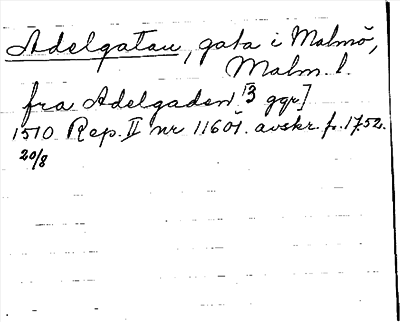 Adelgatan, gata i Malmö,
Malm. l.
fra Adelgaden [3 ggr]
1510 Rep. II nr 11601. avskr. fr. 1752.
20/8